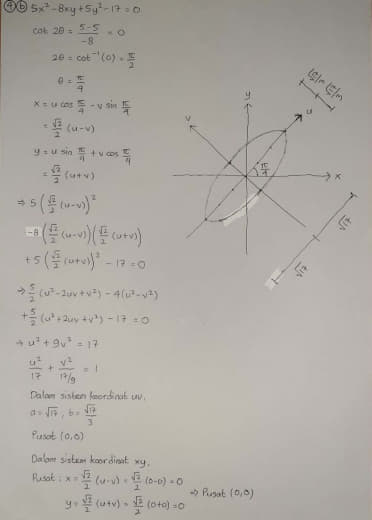 ④ⓑ 5x² - 8xy + 5y² - 17 = 0
cot 2θ = (5-5)/(-8) = 0
2θ = cot⁻¹ (0) = π/2
θ = π/4
x = u cos π/4 - v sin π/4
= √2/2 (u-v)
y = u sin π/4 + v cos π/4
= √2/2 (u+v)
⇒ 5 (√2/2 (u-v))²
-8 (√2/2 (u-v)) (√2/2 (u+v))
+5 (√2/2 (u+v))² - 17 = 0
⇒ 5/2 (u² - 2uv + v²) - 4(u² - v²)
+ 5/2 (u² + 2uv + v²) - 17 = 0
⇒ u² + 9v² = 17
u²/17 + v²/(17/9) = 1
Dalam sistem koordinat uv,
a = √17, b = √17/3
Pusat (0,0)
Dalam sistem koordinat xy,
Pusat : x = √2/2 (u-v) = √2/2 (0-0) = 0
y = √2/2 (u+v) = √2/2 (0+0) = 0
⇒ Pusat (0,0)
y
u
v
x
π/4
√17/3
√17/3
√17
√17